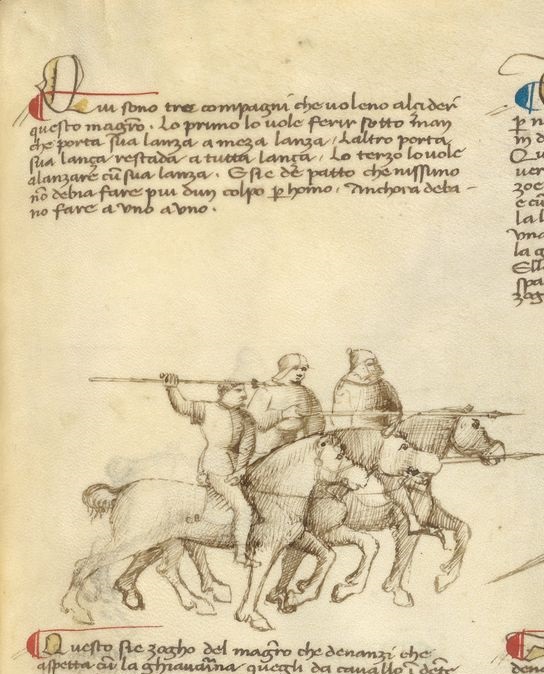 Qui sono tre compagni che voleno alcider
questo magro. Lo primo lo vole ferir sotto man
che porta sua lanza a meza lanza, Laltro porta
sua lança restada a tutta lança, Lo terzo lo vole
alanzare cũ sua lanza. E si e de patto che nissuno
nõ debia fare piu dun colpo p homo. Anchora deba-
no fare a uno a uno.
Questo si e zogho del magro che denanzi che
aspetta cũ la ghiavarina quegli da cavallo
p n
in d
Qu
ver
zoe
e cũ
la l
una
la g
Ell
spa
zog